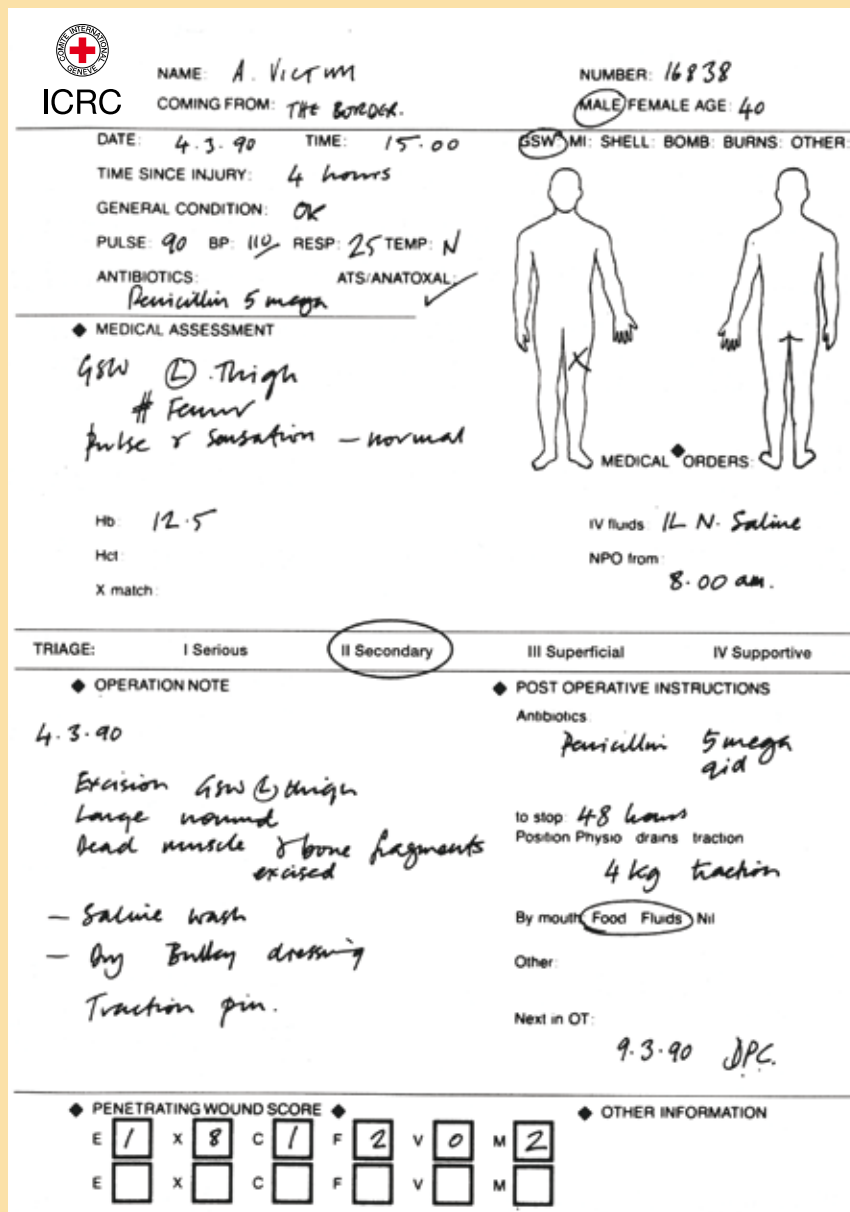 COMITE INTERNATIONAL GENEVE
ICRC
NAME: A. VICTIM
NUMBER: 16838
COMING FROM: THE BORDER.
MALE/FEMALE AGE: 40
DATE: 4.3.90 TIME: 15.00
GSW: MI: SHELL: BOMB: BURNS: OTHER:
TIME SINCE INJURY: 4 hours
GENERAL CONDITION: OK
PULSE: 90 BP: 110/ RESP: 25 TEMP: N
ANTIBIOTICS: ATS/ANATOXAL: ✓
Penicillin 5 mega
◆ MEDICAL ASSESSMENT
GSW Ⓛ Thigh
# Femur
Pulse & Sensation – normal
X
MEDICAL ◆ ORDERS:
Hb: 12.5
IV fluids: 1L N. Saline
Hct:
NPO from:
8.00 am.
X match:
TRIAGE: I Serious II Secondary III Superficial IV Supportive
◆ OPERATION NOTE
4.3.90
Excision GSW Ⓛ thigh
Large wound
Dead muscle & bone fragments
excised
– Saline wash
– Dry Bulky dressing
Traction pin.
◆ POST OPERATIVE INSTRUCTIONS
Antibiotics:
Penicillin 5 mega
qid
to stop: 48 hours
Position Physio drains traction
4 kg traction
By mouth Food Fluids Nil
Other:
Next in OT:
9.3.90 DPC.
◆ PENETRATING WOUND SCORE ◆
◆ OTHER INFORMATION
E 1 X 8 C 1 F 2 V 0 M 2
E X C F V M